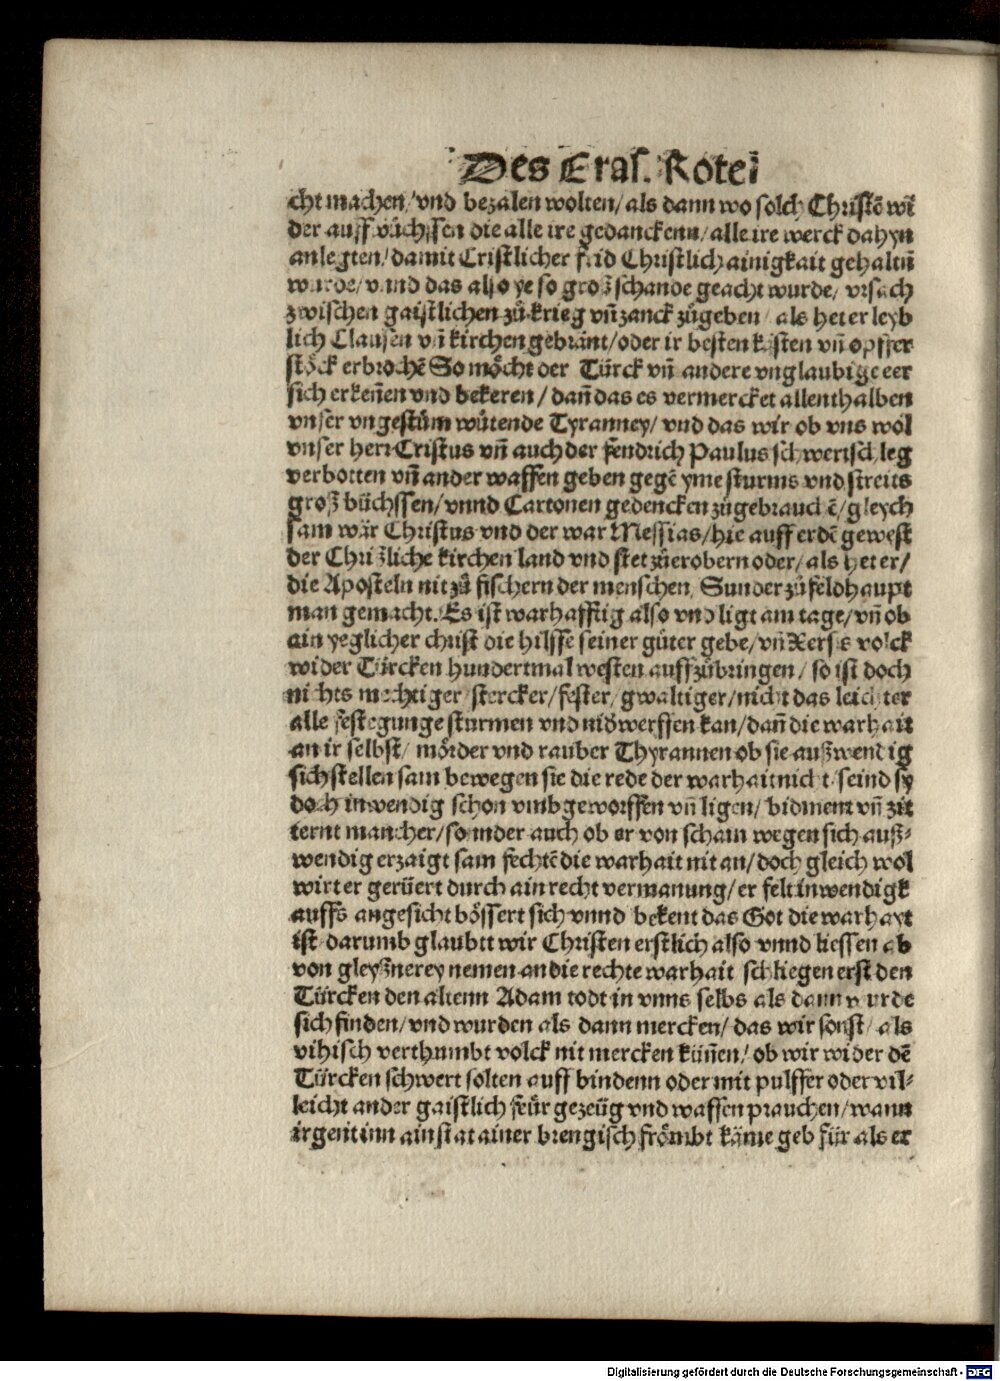 Des Eras. Rotei̅
cht machen/ vnd bezalen wolten/ als dann wo solch Christe̅ wi̅
der auff wüchssen die alle ire gedanckenn/ alle ire werck dahyn
anlegten/ damit Cristlicher frid Christlich ainigkait gehaltn̅
wurde/ vnnd das also ye so groß schande geacht wurde/ vrsach
zwischen gaistlichen zů krieg vn̅ zanck zůgeben/ als het er leyb
lich Clausen vn̅ kirchen gebrant/ oder ir besten kasten vn̅ opffer
stöck erbroche̅ So möcht der Türck vn̅ andere vnglaubige eer
sich erken̅en vnd bekeren/ dan̅ das es vermercket allenthalben
vnser vngestům wütende Tyranney/ vnd das wir ob vns wol
vnser herr Cristus vn̅ auch der fendrich Paulus schwertschleg
verbotten vn̅ ander waffen geben gege̅ yme sturms vnd streits
groß büchssen/ vnnd Cartonen gedencken zůgebrauche̅/ gleych
sam wär Christus vnd der war Messias/ hie auff erde̅ gewest
der Christliche kirchen land vnd stet zůerobern oder/ als het er/
die Aposteln nit zů fischern der menschen/ Sunder zů feldhaupt
man gemacht. Es ist warhafftig also vnd ligt am tage/ vn̅ ob
ain yeglicher christ die hilffe seiner güter gebe/ vn̅ Xerses volck
wider Türcken hundertmal westen auffzůbringen/ so ist doch
nichts mechtiger/ stercker/ fester/ gwaltiger/ nicht das leichter
alle festegunge sturmen vnd nid̓werffen kan/ dan̅ die warhait
an ir selbst/ mörder vnd rauber Thyrannen ob sie außwendig
sich stellen sam bewegen sie die rede der warhait nicht/ seind sy
doch inwendig schon vmbgeworffen vn̅ ligen/ bidment vn̅ zit
ternt mancher/ so inder auch ob er von scham wegen sich auß⸗
wendig erzaigt sam fechte̅ die warhait nit an/ doch gleich wol
wirt er gerüert durch ain recht vermanung/ er felt inwendigk
auffs angesicht bössert sich vnnd bekent das Got die warhayt
ist darumb glaubtt wir Christen erstlich also vnnd liessen ab
von gleyßnerey nemen an die rechte warhait schliegen erst den
Türcken den altenn Adam todt in vnns selbs als dann wurde
sich finden/ vnd wurden als dann mercken/ das wir sonst/ als
vihisch verthumbt volck nit mercken kün̅en/ ob wir wider de̅
Türcken schwert solten auff bindenn oder mit pulffer oder vil⸗
leicht ander gaistlich feür gezeüg vnd waffen prauchen/ wann
irgent inn ain stat ainer brengisch frömbt käme geb für als er
Digitalisierung gefördert durch die Deutsche Forschungsgemeinschaft - DFG